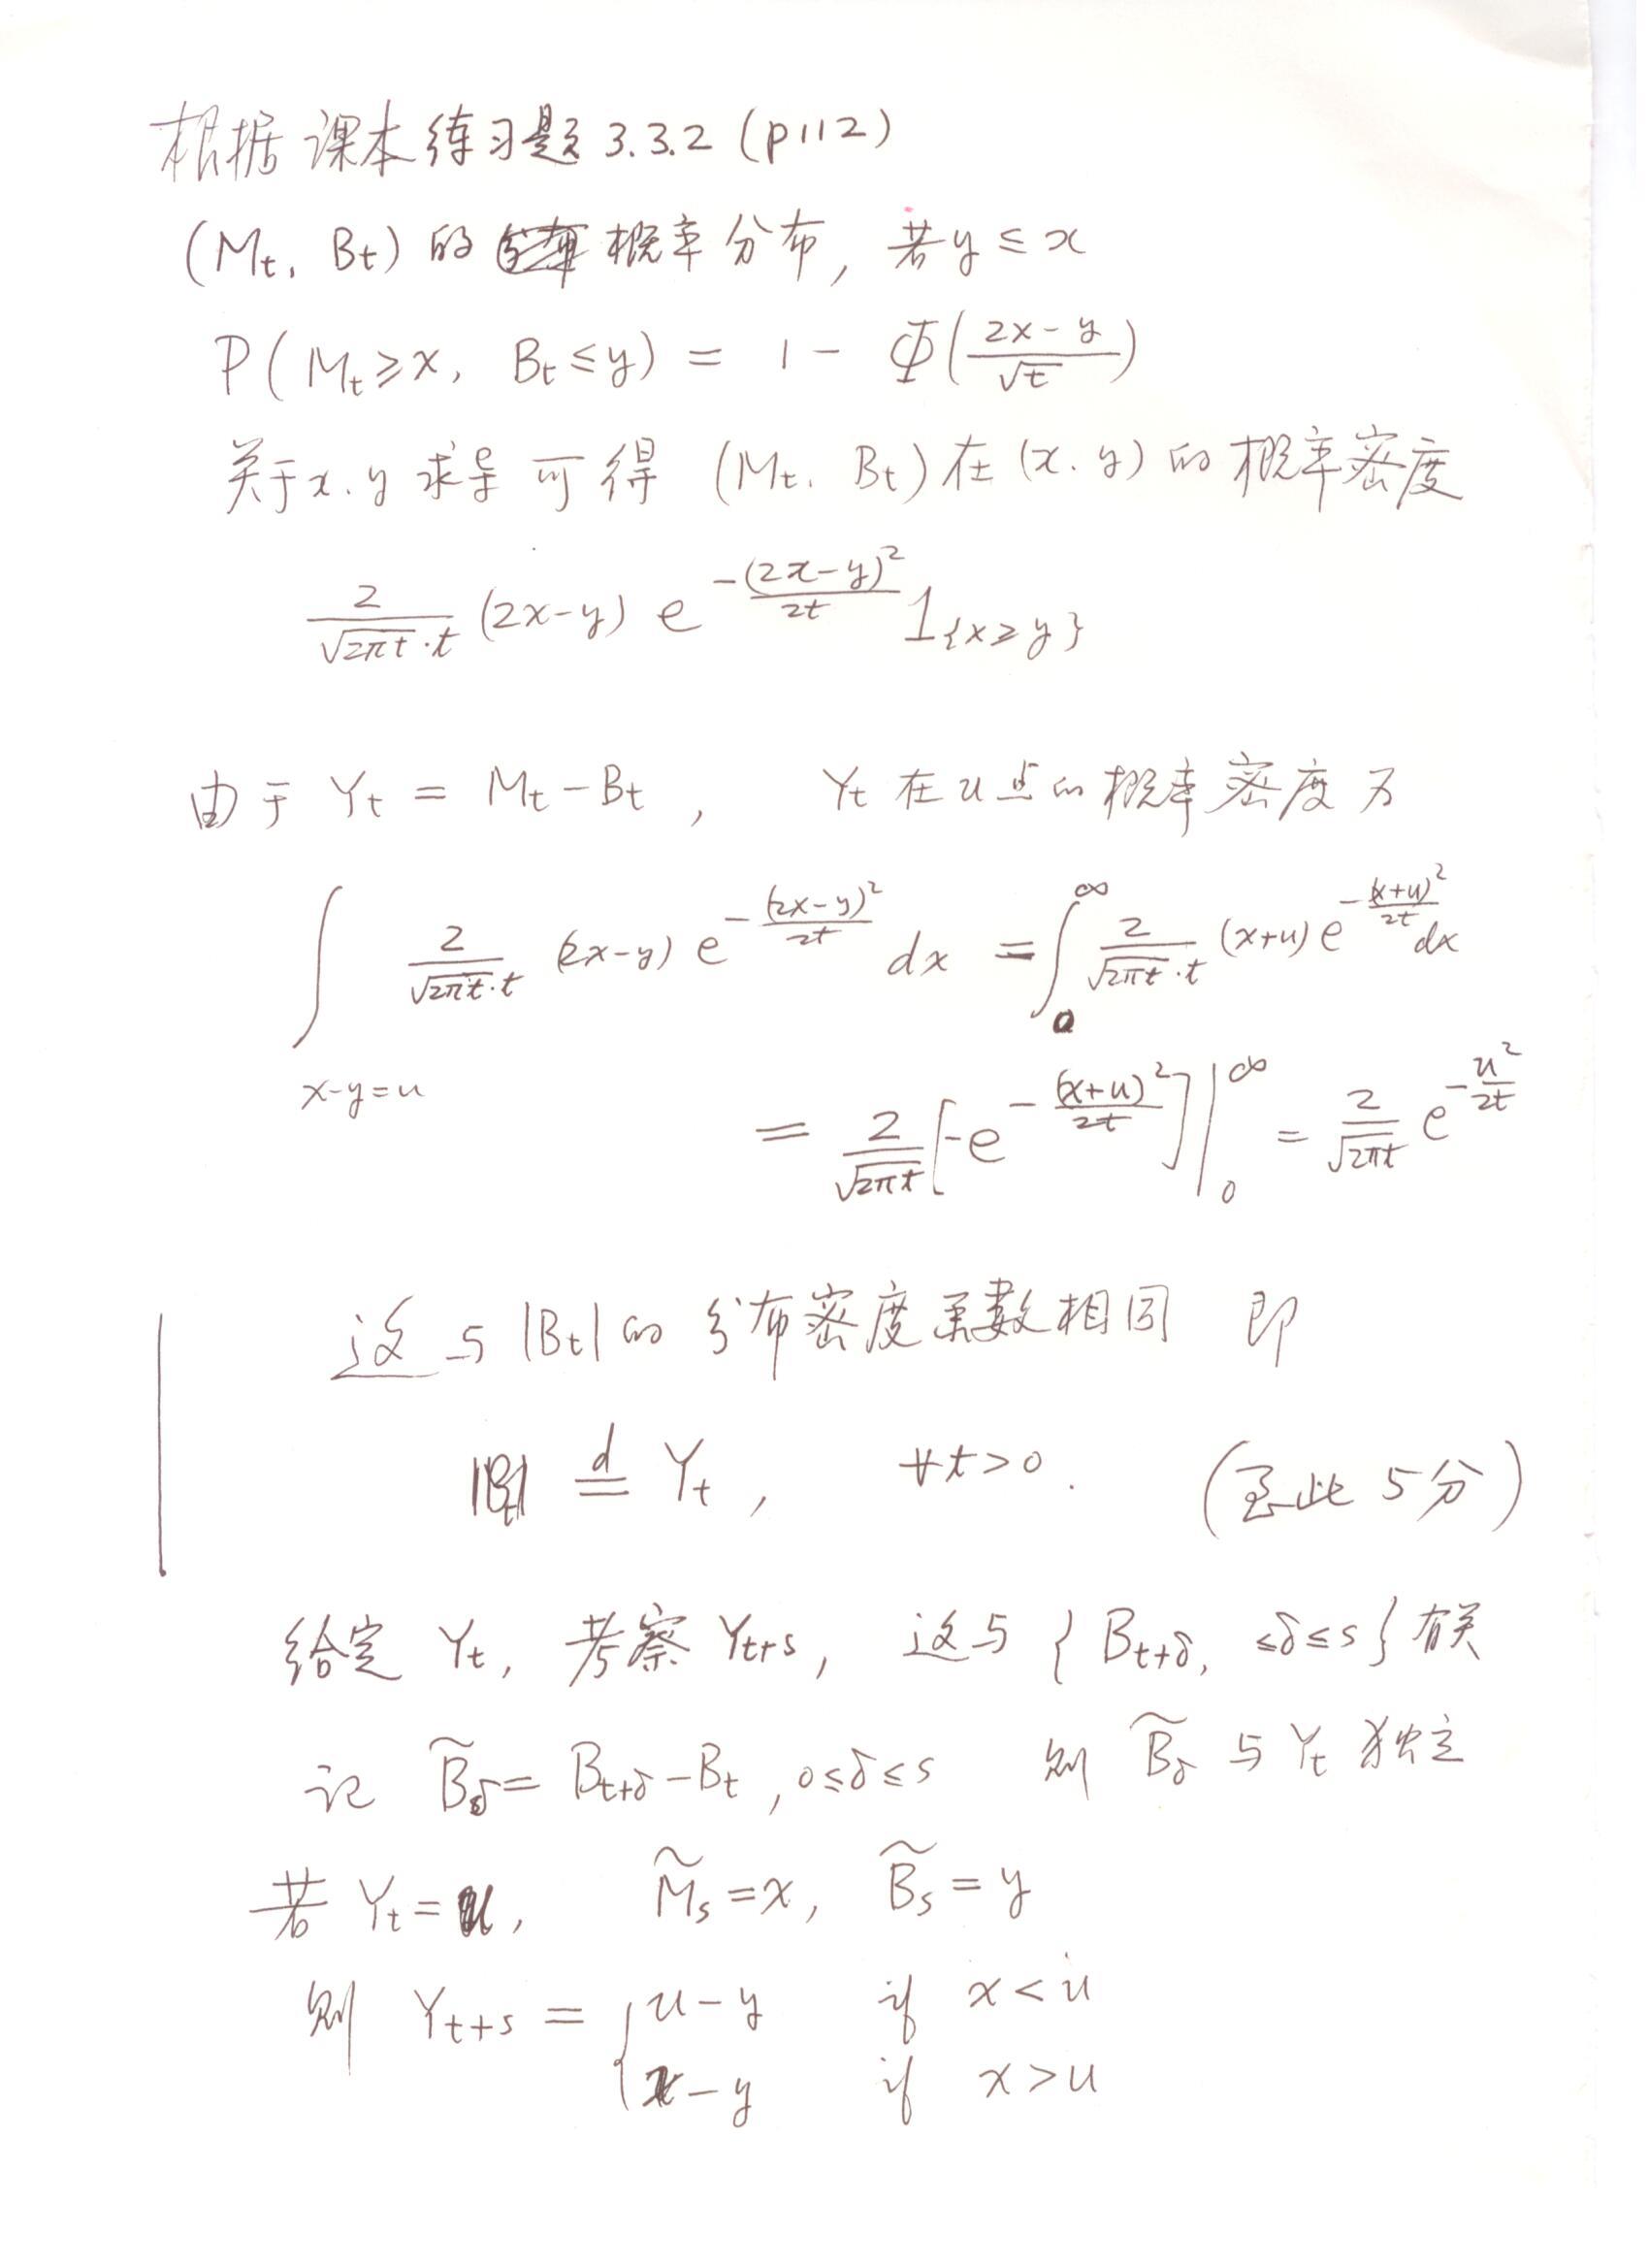 根据课本练习题 3.3.2 (p112)
(Mt, Bt) 的 概率分布, 若 y ≤ x
P( Mt ≥ x, Bt ≤ y) = 1 - Φ( (2x-y)/√t )
关于 x, y 求导 可得 (Mt, Bt) 在 (x, y) 的 概率密度
2/(√2πt · t) (2x-y) e^{-(2x-y)²/2t} 1{x≥y}
由于 Yt = Mt - Bt, Yt 在 u 点的概率密度为
∫_{x-y=u} 2/(√2πt · t) (2x-y) e^{-(2x-y)²/2t} dx = ∫_0^∞ 2/(√2πt · t) (x+u) e^{-(x+u)²/2t} dx
= 2/√2πt [-e^{-(x+u)²/2t}] |_0^∞ = 2/√2πt e^{-u²/2t}
这与 |Bt| 的 分布密度函數相同 即
|Bt| =^d Yt, ∀t>0. (至此 5分)
给定 Yt, 考察 Yt+s, 这与 { B_{t+δ}, ≤δ≤s } 有关
记 B̃_δ = B_{t+δ} - Bt, 0≤δ≤s 则 B̃_δ 与 Yt 独立
若 Yt = u, M̃s = x, B̃s = y
则 Yt+s = { u-y if x<u
x-y if x>u